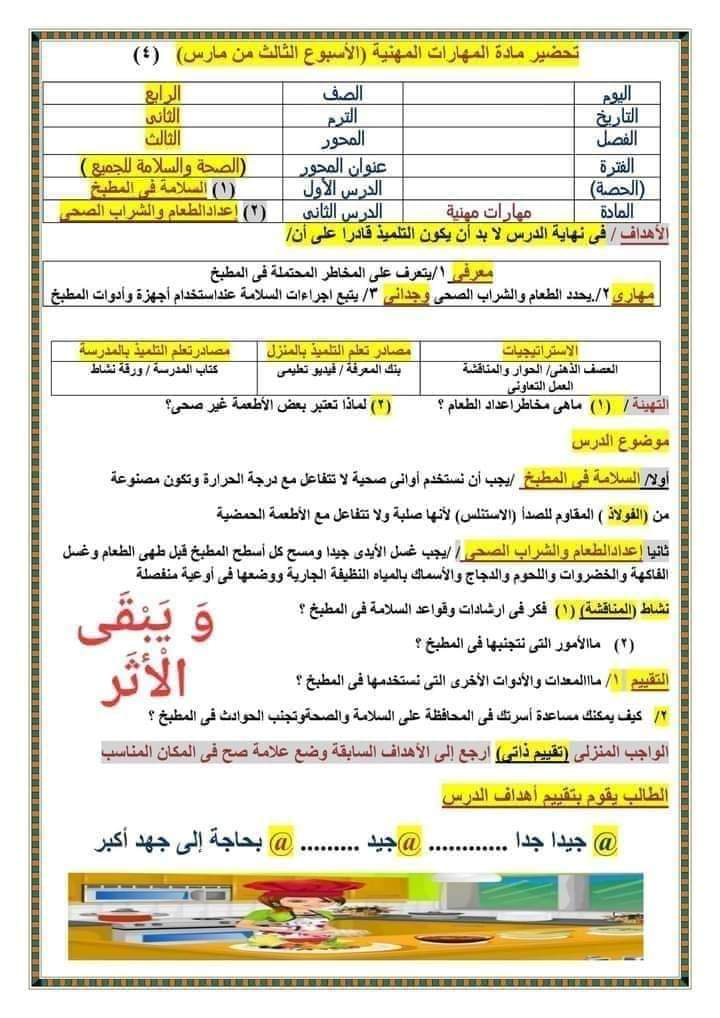 تحضير مادة المهارات المهنية (الأسبوع الثالث من مارس) (٤)
اليوم الصف الرابع
التاريخ الترم الثانى
الفصل المحور الثالث
الفترة عنوان المحور (الصحة والسلامة للجميع )
(الحصة) الدرس الأول (١) السلامة فى المطبخ
المادة مهارات مهنية الدرس الثانى (٢) إعدادالطعام والشراب الصحى
الأهداف / فى نهاية الدرس لا بد أن يكون التلميذ قادرا على أن/
معرفى ١/يتعرف على المخاطر المحتملة فى المطبخ
مهارى ٢/.يحدد الطعام والشراب الصحى وجدانى ٣/ يتبع اجراءات السلامة عنداستخدام أجهزة وأدوات المطبخ
الاستراتيجيات مصادر تعلم التلميذ بالمنزل مصادرتعلم التلميذ بالمدرسة
العصف الذهنى/ الحوار والمناقشة بنك المعرفة / فيديو تعليمى كتاب المدرسة / ورقة نشاط
العمل التعاونى
التهيئة / (١) ماهى مخاطراعداد الطعام ؟ (٢) لماذا تعتبر بعض الأطعمة غير صحى؟
موضوع الدرس
أولا/ السلامة فى المطبخ /يجب أن نستخدم أوانى صحية لا تتفاعل مع درجة الحرارة وتكون مصنوعة
من (الفولاذ ) المقاوم للصدأ (الاستنلس) لأنها صلبة ولا تتفاعل مع الأطعمة الحمضية
ثانيا إعدادالطعام والشراب الصحى / /يجب غسل الأيدى جيدا ومسح كل أسطح المطبخ قبل طهى الطعام وغسل
الفاكهة والخضروات واللحوم والدجاج والأسماك بالمياه النظيفة الجارية ووضعها فى أوعية منفصلة
نشاط (المناقشة) (١) فكر فى ارشادات وقواعد السلامة فى المطبخ ؟
(٢) ماالأمور التى نتجنبها فى المطبخ ؟
وَ يَبْقَى
الْأثَر
التقييم ١/ ماالمعدات والأدوات الأخرى التى نستخدمها فى المطبخ ؟
٢/ كيف يمكنك مساعدة أسرتك فى المحافظة على السلامة والصحةوتجنب الحوادث فى المطبخ ؟
الواجب المنزلى (تقييم ذاتى) ارجع إلى الأهداف السابقة وضع علامة صح فى المكان المناسب
الطالب يقوم بتقييم أهداف الدرس
@ جيدا جدا ............ @جيد ......... @ بحاجة إلى جهد أكبر